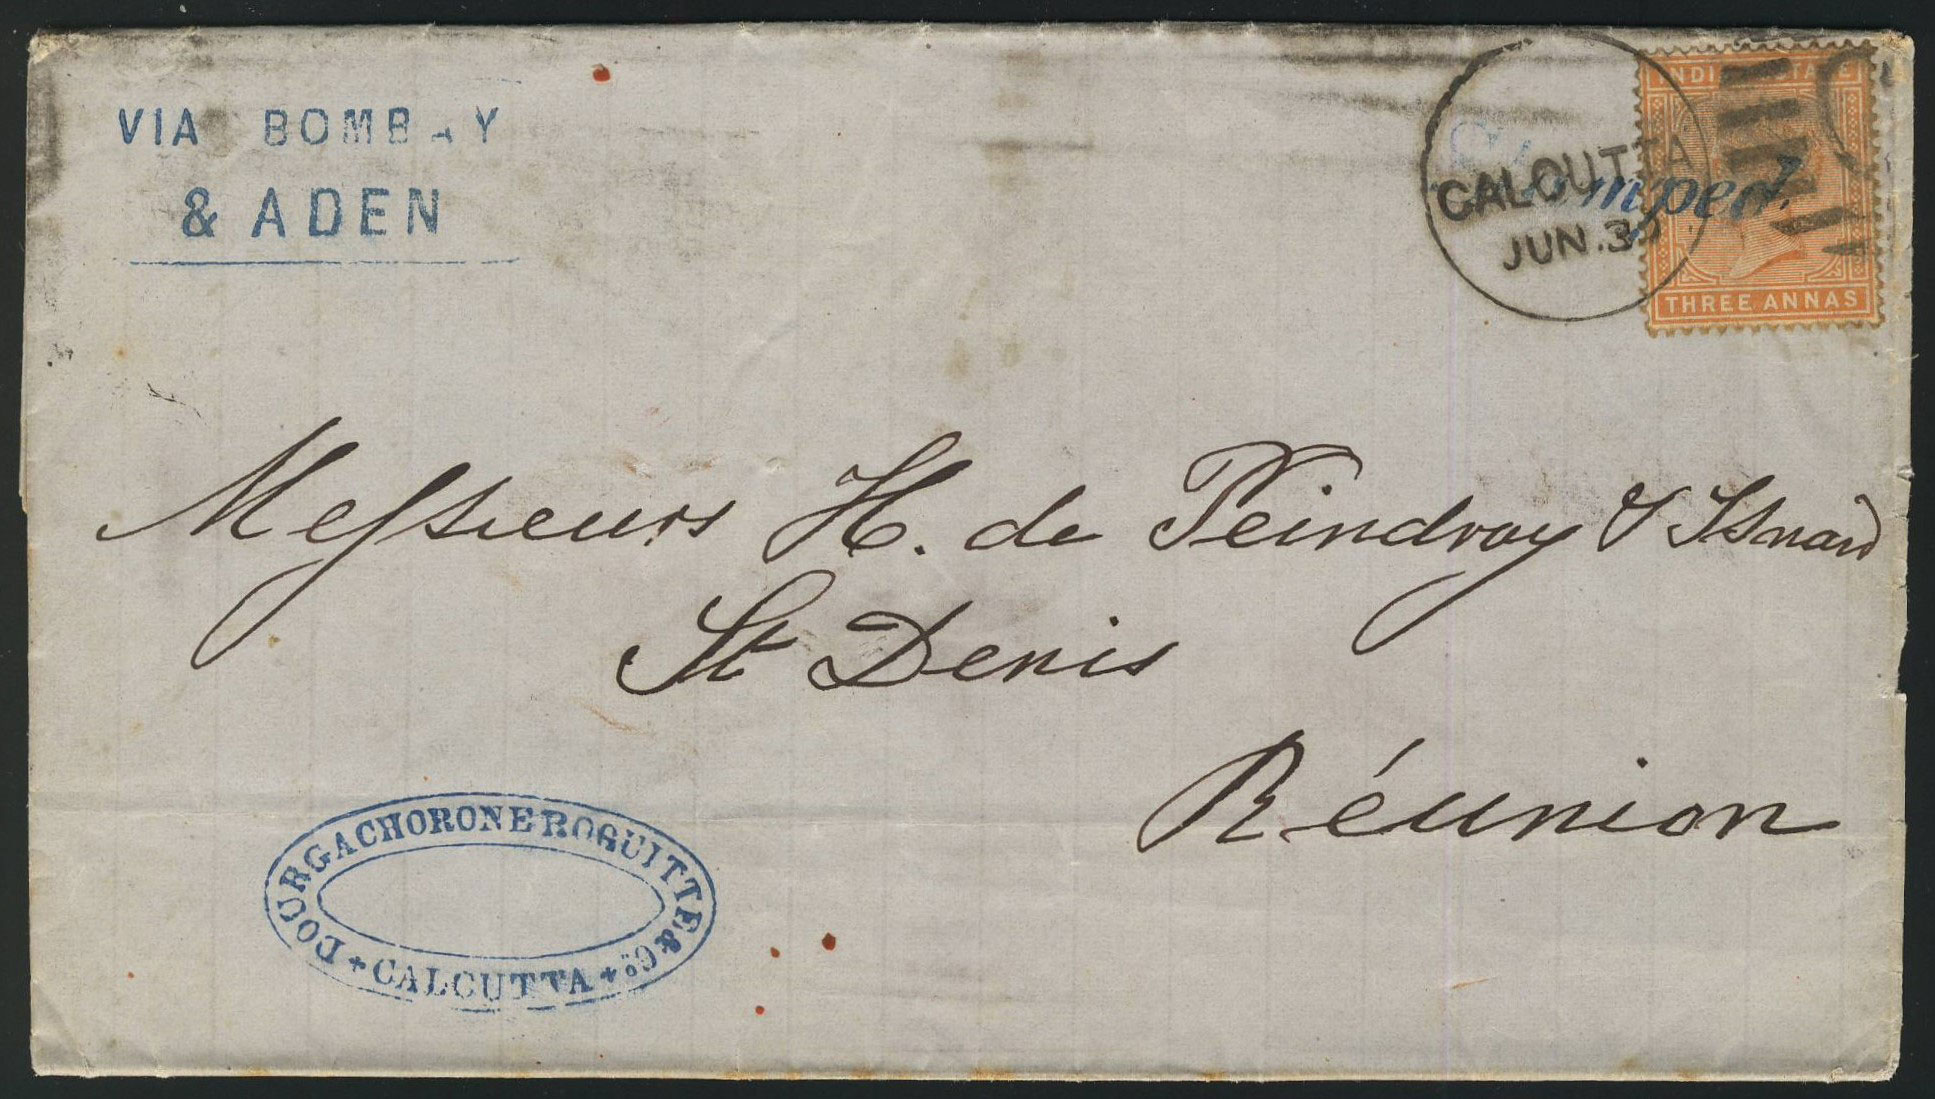 VIA BOMBAY
& ADEN
CALCUTTA
JUN.30
Stamped.
THREE ANNAS
Messieurs H. de Peindray & Isnard
St Denis
Réunion
DOURGACHORONE ROQUITTE & Co.
* CALCUTTA *